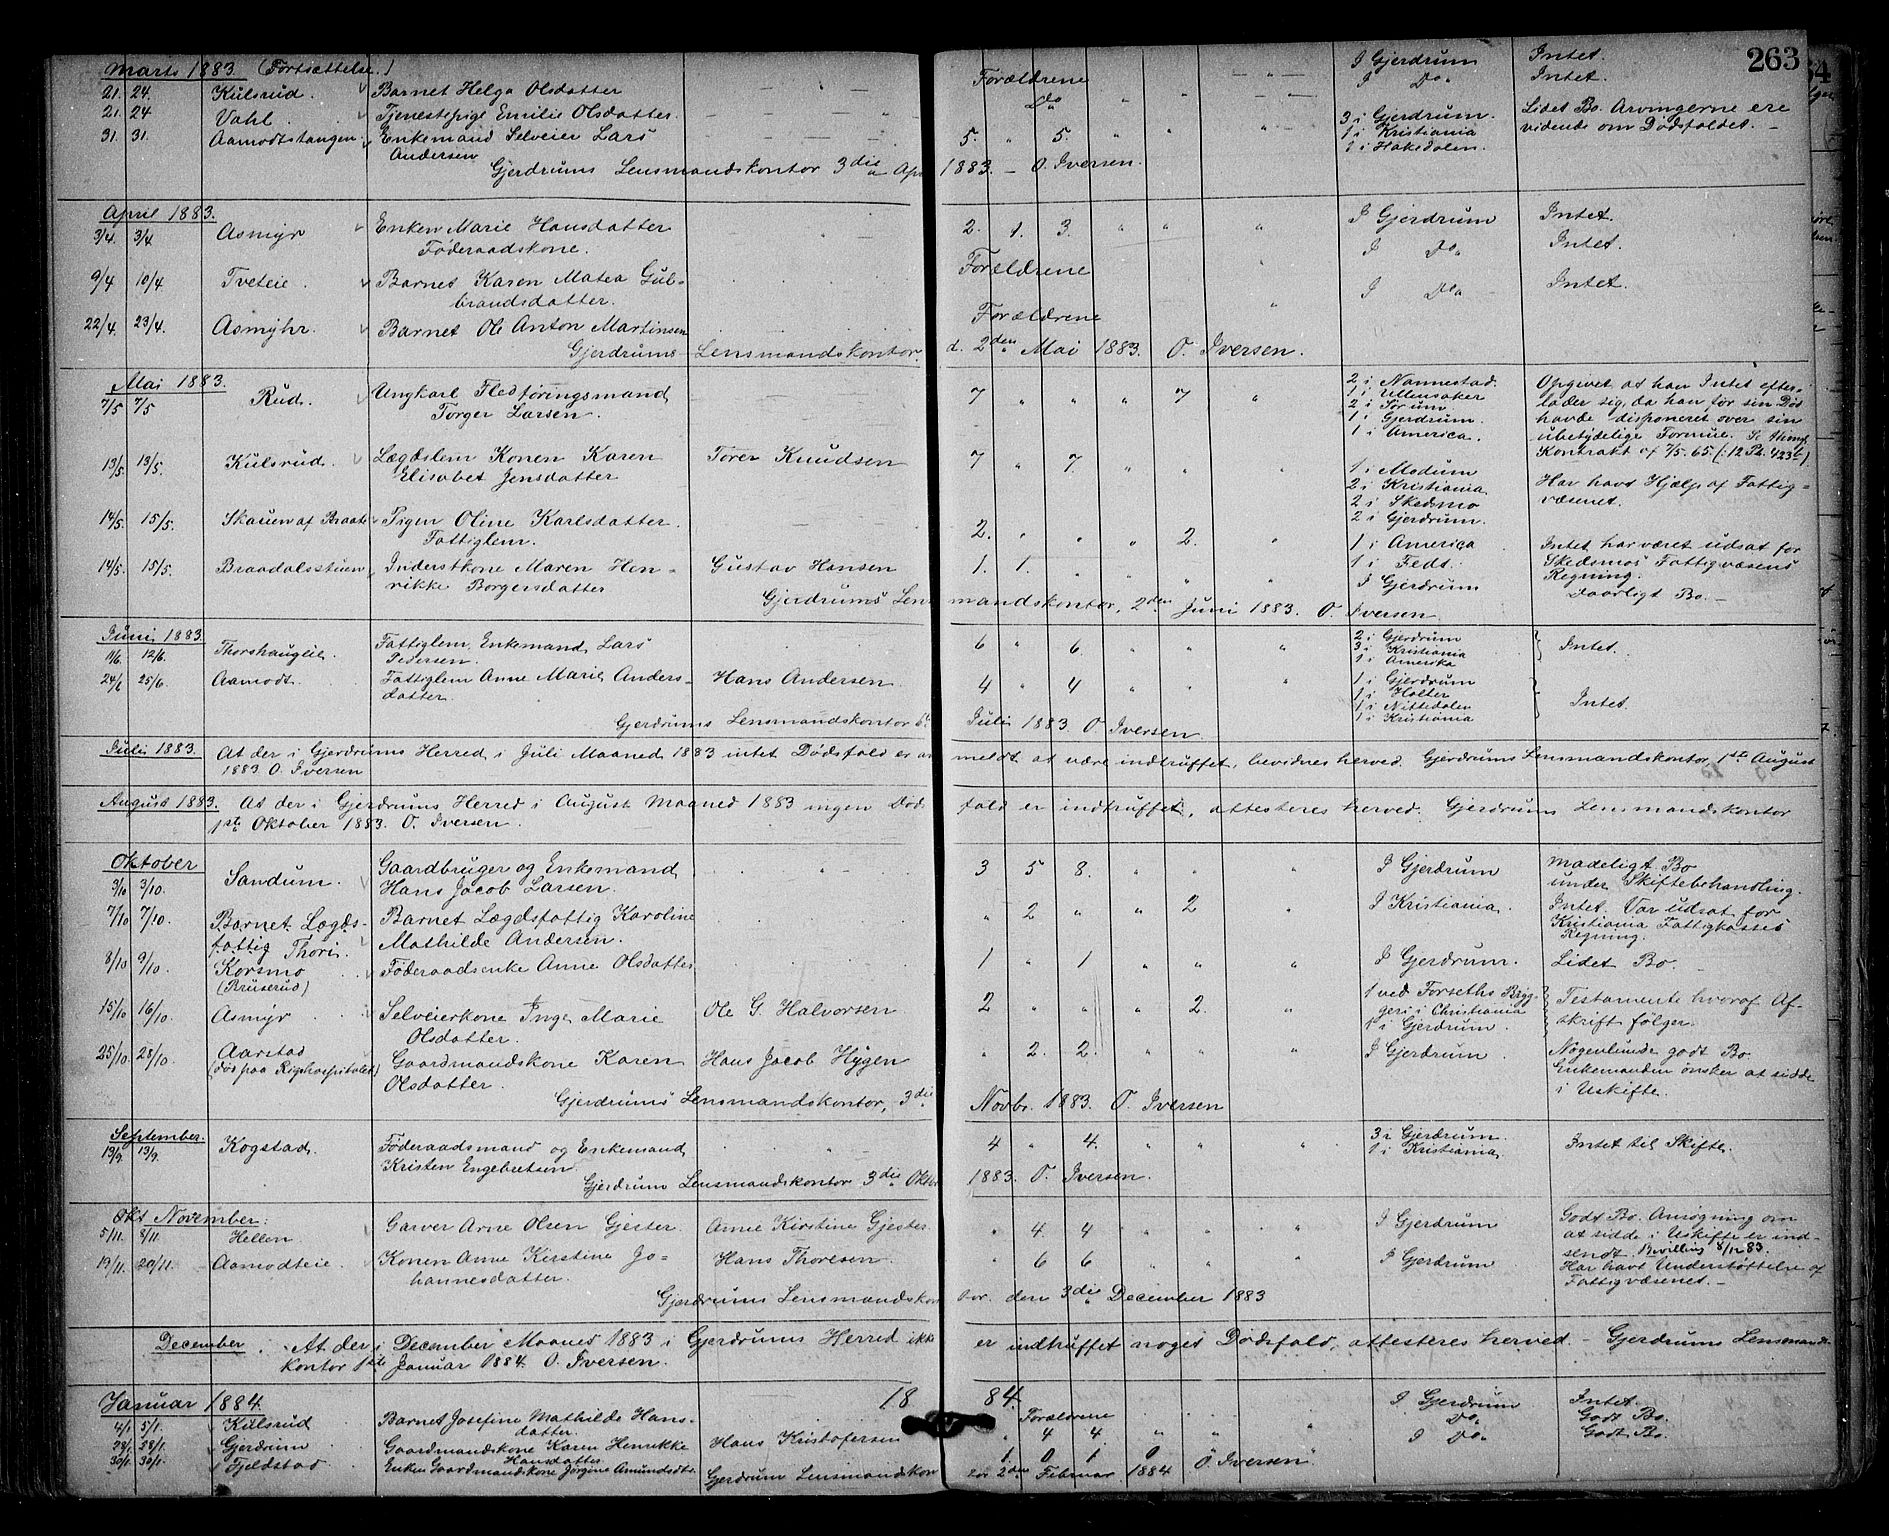 263
Marts 1883. (Fortsættelse.)
21. 24. Kulsrud. Barnet Helga Olsdatter Forældrene I Gjerdrum Intet.
21. 24 Vahl. Tjenestepige Emilie Olsdatter. Do I Do Intet.
31. 31. Aamodtstangen. Enkemand Selveier Lars Andersen 5. " 5. " " " 3 i Gjerdrum. 1 i Kristiania 1 i Hakedalen. Lidet Bo. Arvingerne ere vidende om Dødsfaldet.
Gjerdrums Lensmandskontor 3die Apr 1883. – O. Iversen.
April 1883.
3/4. 3/4. Asmyr Enken Marie Hansdatter Føderaadskone. 2. 1. 3. " " " I Gjerdrum Intet.
9/4 10/4. Tveteie. Barnet Karen Matea Gulbrandsdatter. Forældrene I Do Intet.
22/4 23/4. Asmyhr. Barnet Ole Anton Martinsen Forældrene I Do Intet.
Gjerdrums Lensmandskontor d. 2den Mai 1883. O. Iversen.
Mai 1883.
7/5 7/5 Rud. Ungkarl Fledføringsmand Torger Larsen. 7 " " " 7 " 2 i Nannestad. 1 i Ullensaker 2 i Sørum 1 i Gjerdrum. 1 i America. Opgivet at han Intet efterlader sig, da han før sin Død havde disponeret over sin ubetydelige Formue. Kontrakt af 7/5. 65.
13/5. 13/5. Kulsrud. Lægdslem Konen Karen Elisabet Jensdatter Torer Knudsen 7 " 7 " " " 1 i Modum 2 i Kristiania 2 i Skedsmo 2 i Gjerdrum. Har havt Hjælp af Fattigvæsenet.
14/5. 15/5. Skauen af Braate Pigen Oline Karlsdatter. Fattiglem. 2. " " " 2. " 1 i America 1 i Fedt. Intet, har været udsat for Skedsmos Fattigvæsens Regning.
14/5. 15/5. Braadalsstuen Inderstkone Maren Henrikke Borgersdatter Gustav Hansen 1. 1. " " " " I Gjerdrum Daarligt Bo.
Gjerdrums Lensmandskontor, 2den Juni 1883. O. Iversen.
Juni 1883.
11/6. 12/6. Thorshauglie. Fattiglem Enkemand Lars Pedersen. 6 " 6. " " " 2 i Gjerdrum 3 i Kristiania 1 i Amerika Intet.
24/6 25/6. Aamodt. Fattiglem Anne Marie Andersdatter Hans Andersen 4 " 4 " " " 1 i Gjerdrum 1 i Holter 1 i Nittedalen 1 i Kristiania Intet.
Gjerdrums Lensmandskontor Juli 1883 O. Iversen.
Juli 1883. At der i Gjerdrums Herred i Juli Maaned 1883 intet Dødsfald er anmeldt at være indtruffet, bevidnes herved. Gjerdrums Lensmandskontor, 1ste August
1883. O. Iversen
August 1883. At der i Gjerdrums Herred i August Maaned 1883 ingen Dødsfald er indtruffet, attesteres herved. Gjerdrums Lensmandskontor
1ste Oktober 1883. O. Iversen.
Oktober
3/10 3/10. Sandum. Gaardbruger og Enkemand Hans Jacob Larsen. 3 5 8. " " " I Gjerdrum Madeligt Bo under Skiftebehandling.
7/10 7/10. Barnet Lægdsfattig Thori. Barnet Lægdsfattig Karoline Mathilde Andersen. " 2 " " 2 " I Kristiania. Intet. Var udsat for Kristiania Fattigkasses Regning.
8/10 9/10. Korsmo (Bruserud) Føderaadsenke Anne Olsdatter 1 " 1 " " " I Gjerdrum. Lidet Bo.
15/10 16/10. Asmyr Selveierkone Inge Marie Olsdatter. Ole G. Halvorsen 2 " " " 2. " 1 ved Forseths Bryggeri i Christiania 1 i Gjerdrum. Testamente hvoraf Afskrift følger.
25/10. 28/10. Aarstad (død paa Rigshospitalet) Gaardmandskone Karen Olsdatter. Hans Jacob Hygen " 2. 2. " " " I Gjerdrum. Nogenlunde godt Bo. Enkemanden ønsker at sidde i Uskifte.
Gjerdrums Lensmandskontor, 3die Novbr. 1883. O. Iversen
September.
13/9. 13/9. Kogstad. Føderaadsmand og Enkemand Kristen Engebretsen 4 " 4. " " " 3 i Gjerdrum. 1 i Kristiania Intet til Skifte.
Gjerdrum Lensmandskontor 3die Oktbr 1883. O. Iversen.
Okt November.
5/11. 8/11. Hellen Garver Arne Olsen Gjester. Anne Kirstine Gjester " 4. 4 " " " I Gjerdrum Godt Bo. Ansøgning om at sidde i Uskifte er indsendt. Bevilling 8/12 83.
19/11. 20/11. Aamodteie. Konen Anne Kirstine Johannesdatter. Hans Thoresen " 6 6 " " " I Gjerdrum Har havt Understøttelse af Fattigvæsenet.
Gjerdrums Lensmandskontor. den 3die December 1883
December. At der i December Maaned 1883 i Gjerdrums Herred ikke er indtruffet noget Dødsfald, attesteres herved – Gjerdrums Lensmandskontor 1ste Januar 1884. O. Iversen.
Januar 1884. 1884.
4/1 5/1. Kulsrud Barnet Josefine Mathilde Hansdatter. Forældrene I Gjerdrum Intet.
Gjerdrum Gaardmandskone Karen Henrikke Hansdatter Hans Kristofersen " 4 4 " " " Do Godt Bo.
30/1. 30/1. Fjeldstad Enken Gaardmandskone Jørgine Amundsdtr. 1 0 1 0 I Do Godt Bo.
Gjerdrum Lensmandskontor 2den Februar 1884 O Iversen